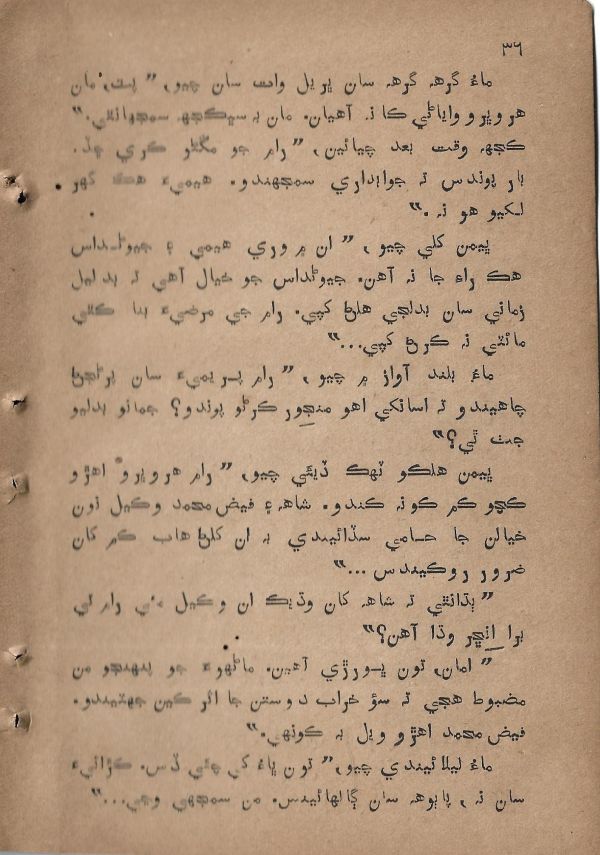 ٣٦
ماءُ گرهه گرهه سان ڀريل وات سان چيو، ”پٽ، مان
هرو ڀرو واياڻي ڪا نه آهيان. مان به سڀڪجهه سمجهانٿي.“
ڪجهه وقت بعد چيائين، ”رام جو مڱڻو ڪري ڇڏ.
بار پوندس ته جوابداري سمجهندو. هيميءَ هڪ گهر
لکيو هو نه.“
ڀيمن کلي چيو، ”ان ۾ وري هيمي ۽ جيوڻداس
هڪ راءِ جا نه آهن. جيوڻداس جو خيال آهي ته بدليل
زماني سان بدلجي هلڻ کپي. رام جي مرضيءَ بنا ڪٿي
مائٽي نه ڪرڻ کپي...“
ماءُ بلند آواز ۾ چيو، ”رام پريميءَ سان پرڻجڻ
چاهيندو ته اسانکي اهو منجور ڪرڻو پوندو؟ جمانو بدليو
جٽ ٿي؟“
ڀيمن هلڪو ٽهڪ ڏيئي چيو، ”رام هرو ڀرو اهڙو
ڪچو ڪم ڪونه ڪندو. شاهه ۽ فيض محمد وڪيل نون
خيالن جا حامي سڏائيندي به ان کلڻ هاب ڪم کان
ضرور روڪيندس...“
”ٻڌائٿي ته شاهه کان وڌيڪ ان وڪيل ۾ئي رام تي
برا اِتچر وڌا آهن؟“
”امان، تون ڀورڙي آهين. ماڻهوءَ جو پنهنجو من
مضبوط هجي ته سؤ خراب دوستن جا اثر ڪين جهٽيندو.
فيض محمد اهڙو ويل به ڪونهي.“
ماءُ ليلائيندي چيو، ”تون ڀاءُ کي چئي ڏس. ڪڙائيءَ
سان نه، پاٻوهه سان ڳالهائينس. من سمجهي وڃي...“